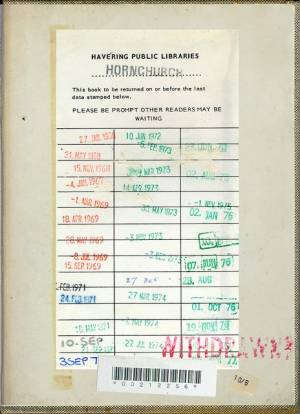 HAVERING PUBLIC LIBRARIES
HORNCHURCH
This book to be returned on or before the last
date stamped below.
PLEASE BE PROMPT OTHER READERS MAY BE
WAITING
10 JUN 1972
-5 FEB 1973
21 MAY 1968
15 NOV 1968
MAR 1973
-4 JAN 1969
14 APR 1973
-1 MAR 1969
30 MAY 1973
-1 NOV 1975
18 APR 1969
02 JAN 76
28 MAY 1969
1973
-8 JUL 1969
15 SEP 1969
07 JUN 76
FEB 1971
27 DEC
23 AUG
24 FEB 1971
27 MAR 1974
01 OCT 76
10 MAY 1971
1974
10-SEP
22 JUL 1974
WITHDRAWN
3 SEP 7
000212256
10/8